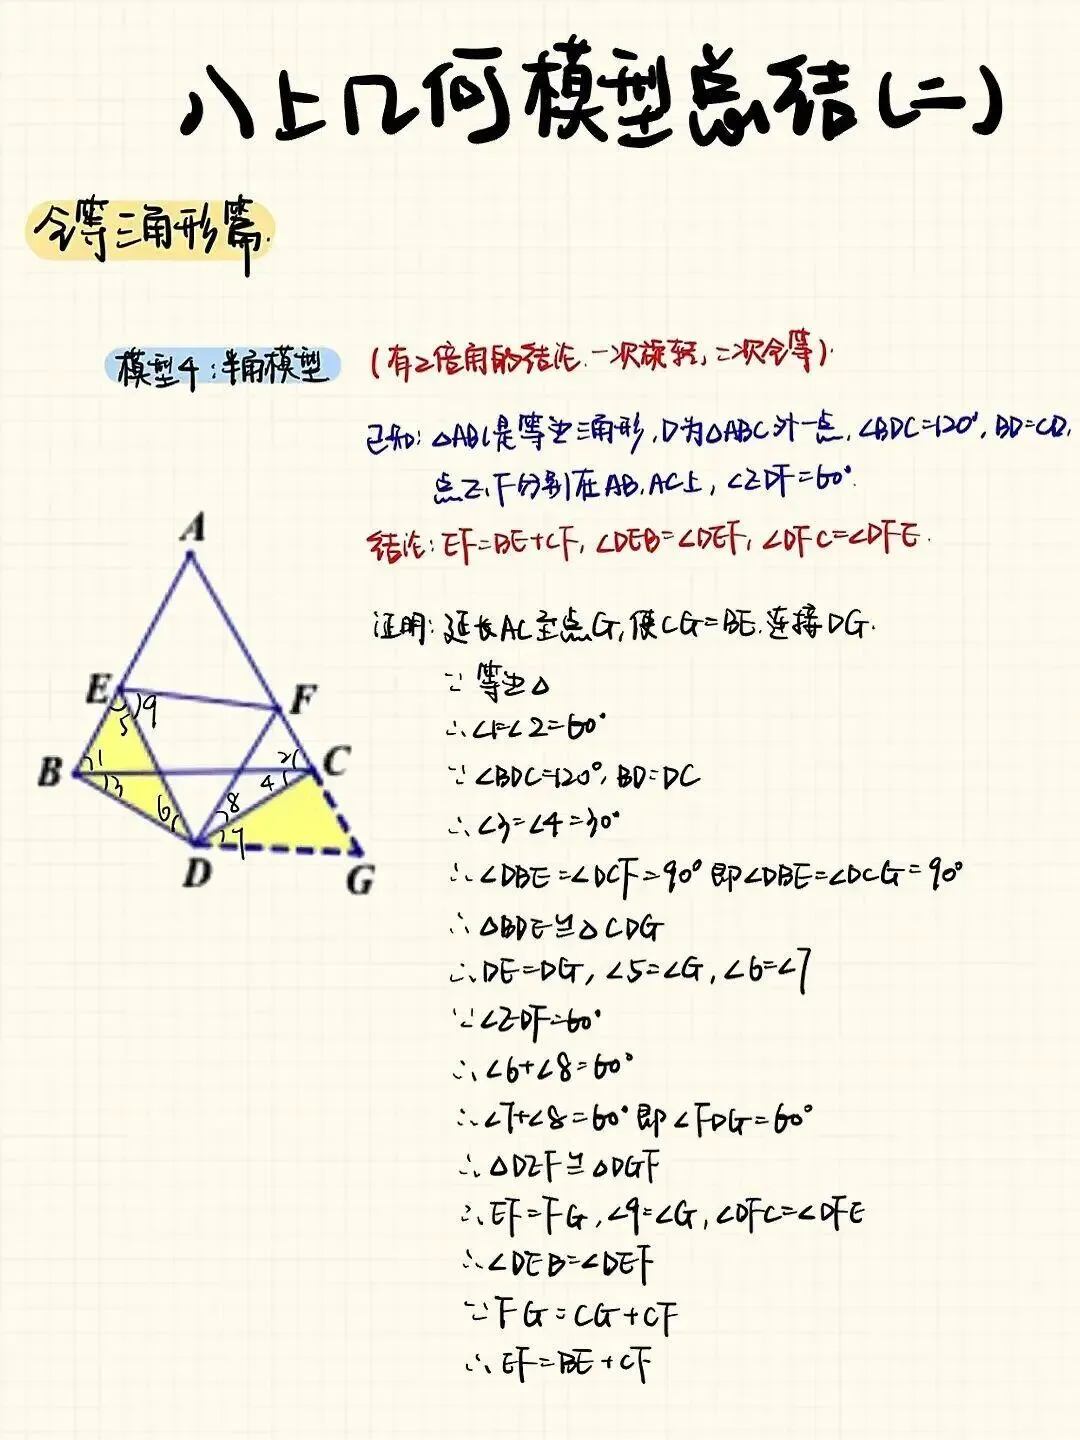 八上几何模型总结(二)
全等三角形篇.
模型4:半角模型 (有2倍角的结论.一次旋转,二次全等).
已知:△ABC是等边三角形,D为△ABC外一点,∠BDC=120°,BD=CD,
点E、F分别在AB、AC上,∠EDF=60°.
结论:EF=BE+CF,∠DEB=∠DEF,∠DFC=∠DFE.
证明:延长AC至点G,使CG=BE.连接DG.
∵ 等边△
∴∠1=∠2=60°
∵ ∠BDC=120°,BD=DC
∴∠3=∠4=30°
∴∠DBE=∠DCF=90°即∠DBE=∠DCG=90°
∴△BDE≌△CDG
∴DE=DG,∠5=∠G,∠6=∠7
∵∠EDF=60°
∴∠6+∠8=60°
∴∠7+∠8=60°即∠FDG=60°
∴△DEF≌△DGF
∴EF=FG,∠9=∠G,∠DFC=∠DFE
∴∠DEB=∠DEF
∵FG=CG+CF
∴EF=BE+CF
A
E 5 9 F
B 1 2 C
3 4
6 8
7
D G